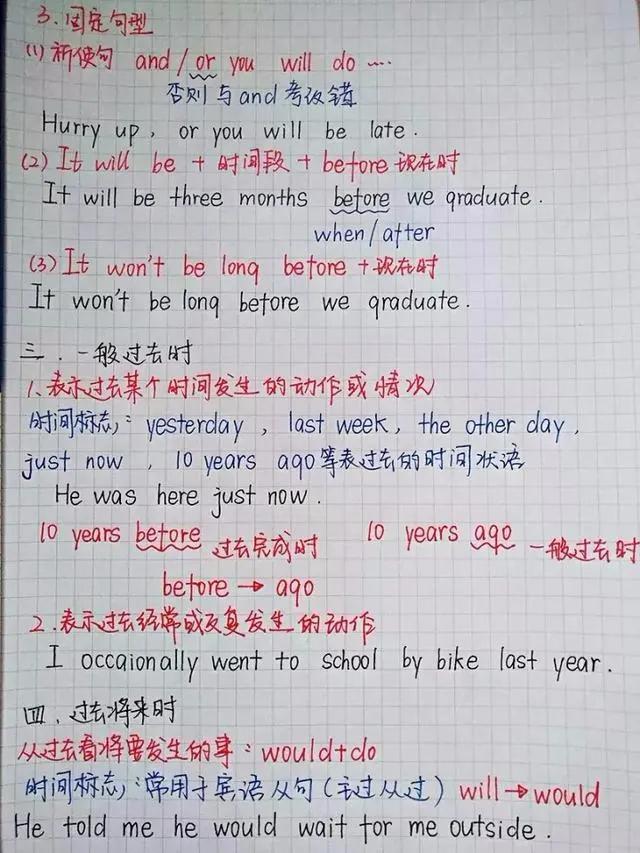 3. 固定句型
(1) 祈使句 and / or you will do ....
否则 与and 考改错
Hurry up, or you will be late.
(2) It will be + 时间段 + before 现在时
It will be three months before we graduate.
when/after
(3) It won't be long before + 现在时
It won't be long before we graduate.
三. 一般过去时
1. 表示过去某个时间发生的动作或情况
时间标志: yesterday, last week, the other day,
just now, 10 years ago等表过去的时间状语
He was here just now.
10 years before 过去完成时 10 years ago 一般过去时
before → ago
2. 表示过去经常或反复发生的动作
I occaionally went to school by bike last year.
四. 过去将来时
从过去看将要发生的事: would+do
时间标志: 常用于宾语从句(主过从过) will→would
He told me he would wait for me outside.